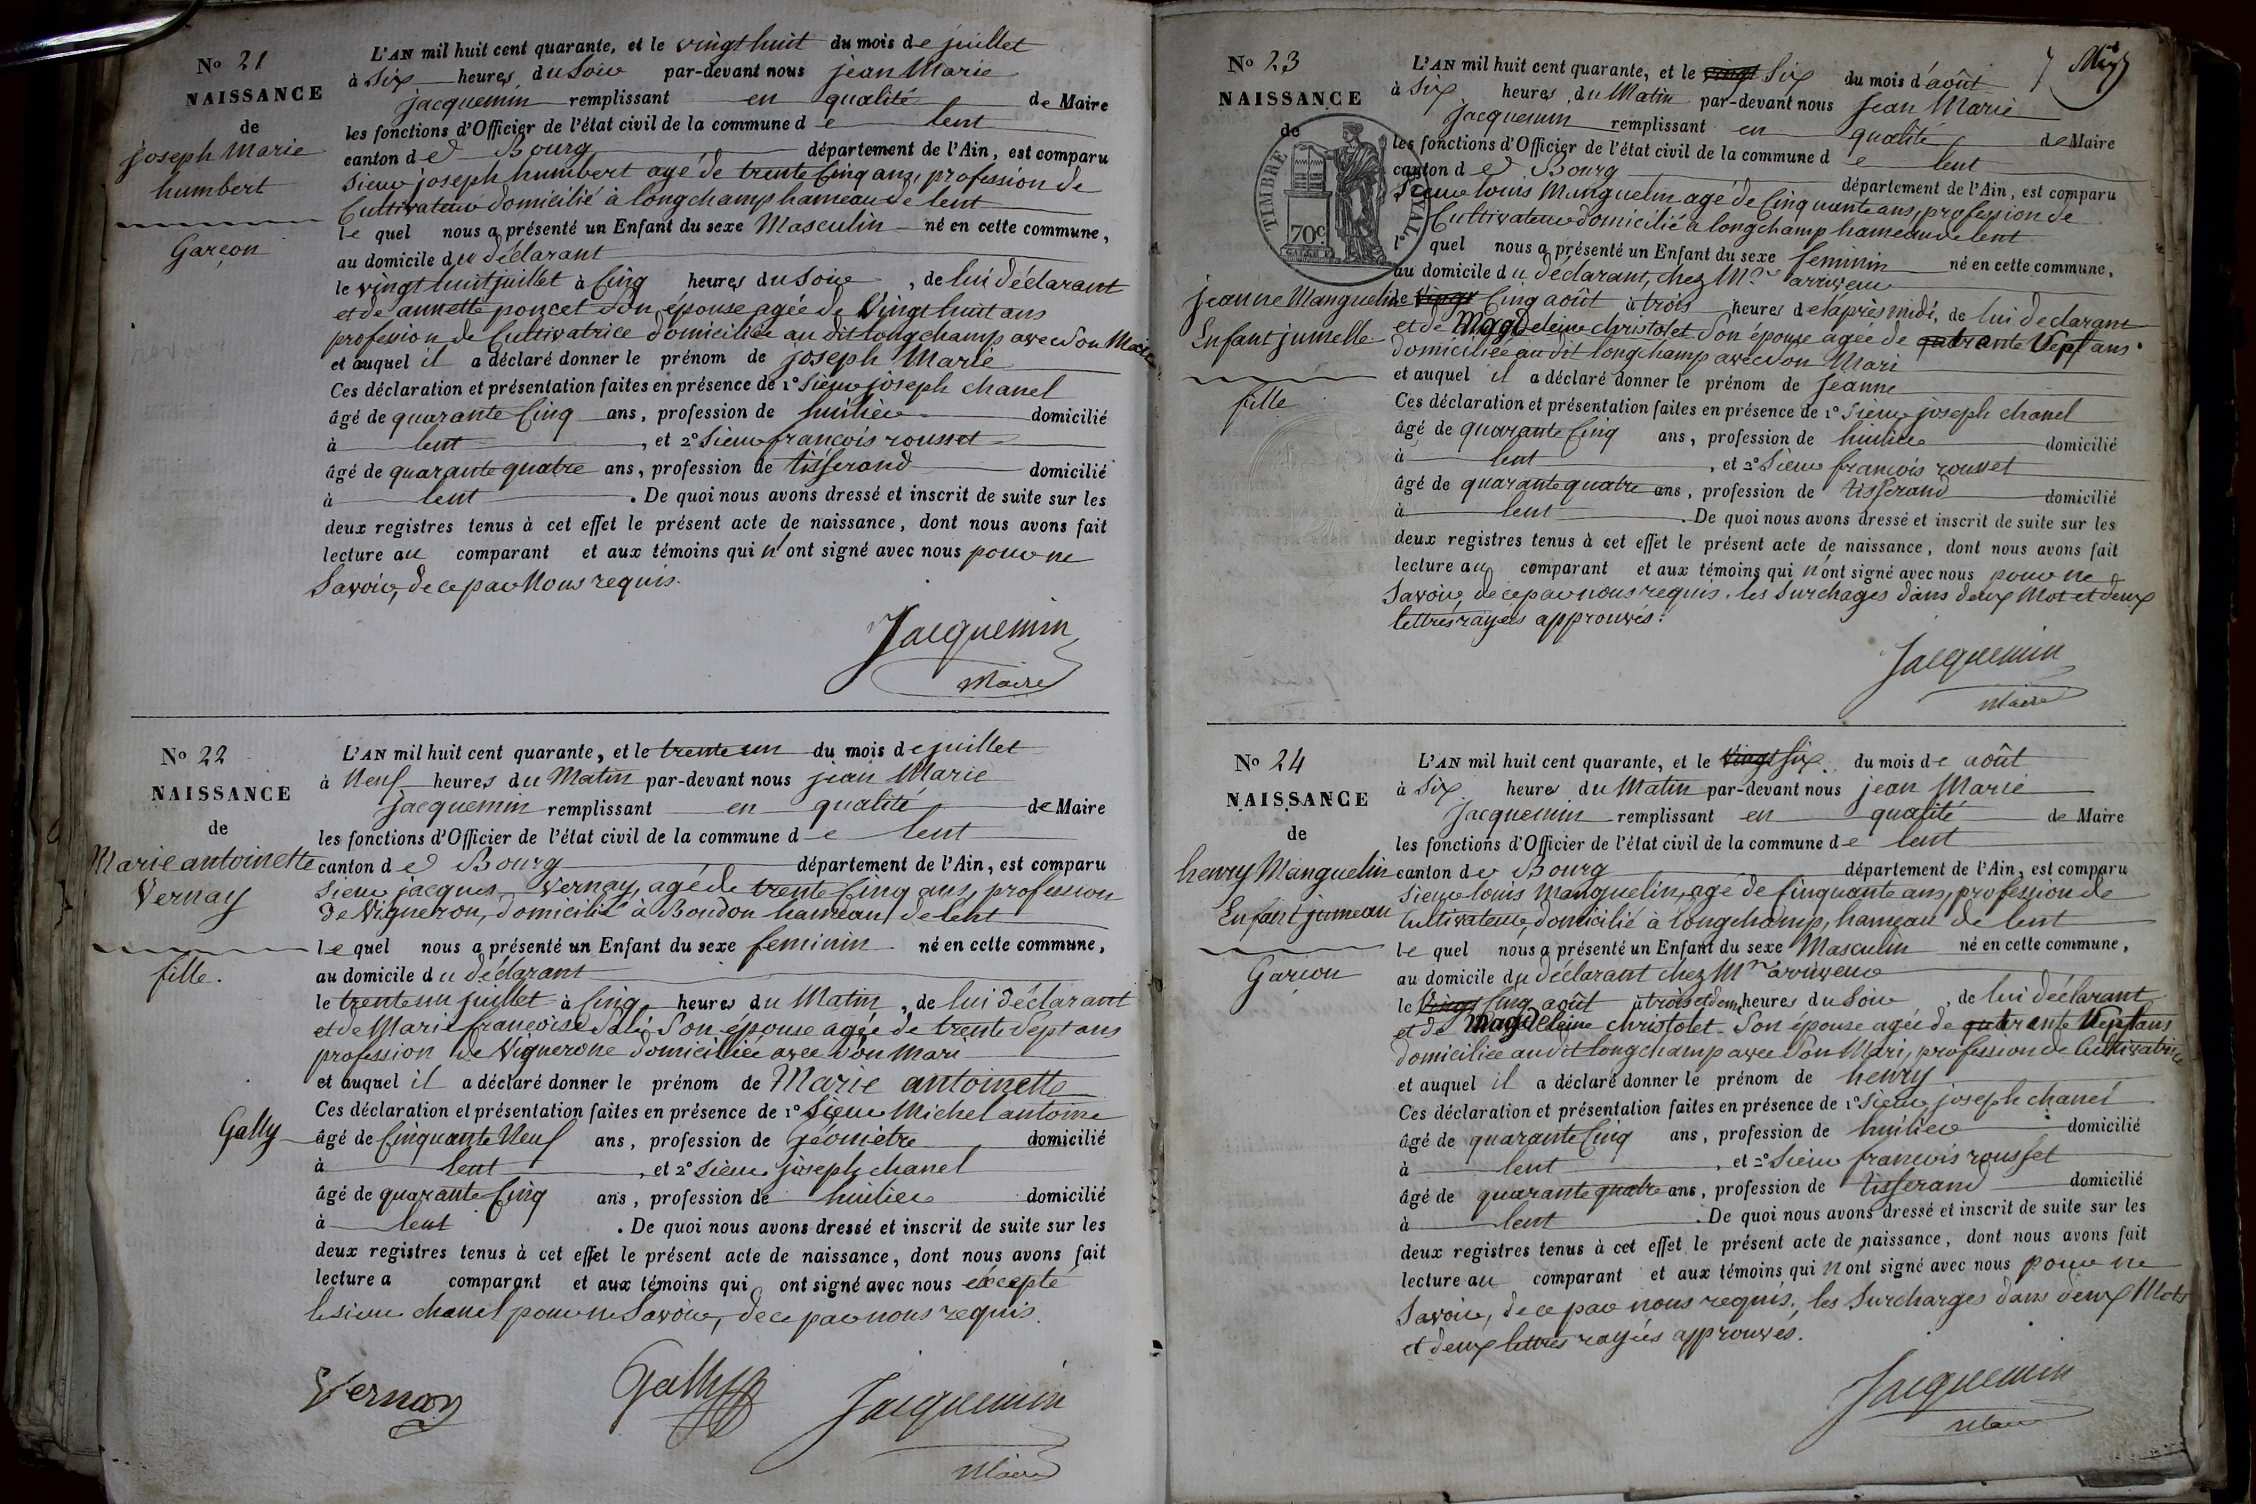 No 21
NAISSANCE
de
joseph Marie
humbert
Garçon
L'AN mil huit cent quarante, et le vingt huit du mois de juillet
à Six heures du Soir par-devant nous jean Marie
jacquemin remplissant en qualité de Maire
les fonctions d'Officier de l'état civil de la commune de lent
canton de Bourg département de l'Ain, est comparu
Sieur joseph humbert agé de trente Cinq ans, profession de
Cultivateur domicilié à longchamp hameau de lent
le quel nous a présenté un Enfant du sexe Masculin né en cette commune,
au domicile du déclarant
le vingt huit juillet à Cinq heures du Soir, de lui déclarant
et de annette poncet Son épouse agée de Vingt huit ans
profession de Cultivatrice domiciliée au dit longchamp avec Son Mari
et auquel il a déclaré donner le prénom de joseph Marie
Ces déclaration et présentation faites en présence de 1º Sieur joseph chanel
âgé de quarante Cinq ans, profession de huilier domicilié
à lent, et 2º Sieur francois rousset
âgé de quarante quatre ans, profession de tisserand domicilié
à lent. De quoi nous avons dressé et inscrit de suite sur les
deux registres tenus à cet effet le présent acte de naissance, dont nous avons fait
lecture au comparant et aux témoins qui n'ont signé avec nous pour ne
Savoir, de ce par Nous requis.
Jacquemin
Maire
No 22
NAISSANCE
de
Marie antoinette
Vernay
fille.
Gally
L'AN mil huit cent quarante, et le trente un du mois de juillet
à Neuf heures du Matin par-devant nous jean Marie
Jacquemin remplissant en qualité de Maire
les fonctions d'Officier de l'état civil de la commune de lent
canton de Bourg département de l'Ain, est comparu
Sieur jacques Vernay, agé de trente Cinq ans, profession
de Vigneron, domicilié à Boudon hameau de lent
le quel nous a présenté un Enfant du sexe feminin né en cette commune,
au domicile du déclarant
le trente un juillet à Cinq heures du Matin, de lui déclarant
et de Marie francoise Son épouse agée de trente Sept ans
profession de Vignerone domiciliée avec Son Mari
et auquel il a déclaré donner le prénom de Marie antoinette
Ces déclaration et présentation faites en présence de 1º Sieur Michel antoine
âgé de Cinquante Neuf ans, profession de géomètre domicilié
à lent, et 2º Sieur joseph chanel
âgé de quarante Cinq ans, profession de huilier domicilié
à lent. De quoi nous avons dressé et inscrit de suite sur les
deux registres tenus à cet effet le présent acte de naissance, dont nous avons fait
lecture a comparant et aux témoins qui ont signé avec nous excepte
le sieur chanel pour ne Savoir, de ce par nous requis.
Vernay
Gally
Jacquemin
Maire
No 23
NAISSANCE
de
TIMBRE
70c
jeanne Manguelin
Enfant jumelle
fille
L'AN mil huit cent quarante, et le vingt Six du mois d'août
à Six heures du Matin par-devant nous Jean Marie
Jacquemin remplissant en qualité de Maire
les fonctions d'Officier de l'état civil de la commune de lent
canton de Bourg département de l'Ain, est comparu
Sieur louis Manguelin agé de Cinquante ans, profession de
Cultivateur domicilié à longchamp hameau de lent
le quel nous a présenté un Enfant du sexe feminin né en cette commune,
au domicile du déclarant, chez Mr arriveur
le vingt Cinq août à trois heures de l'après midi, de lui declarant
et de Magdeleine christolet Son épouse agée de quarante Sept ans
domiciliée au dit longchamp avec Son Mari
et auquel il a déclaré donner le prénom de Jeanne
Ces déclaration et présentation faites en présence de 1º Sieur joseph chanel
âgé de quarante Cinq ans, profession de huilier domicilié
à lent, et 2º Sieur francois rousset
âgé de quarante quatre ans, profession de tisserand domicilié
à lent. De quoi nous avons dressé et inscrit de suite sur les
deux registres tenus à cet effet le présent acte de naissance, dont nous avons fait
lecture au comparant et aux témoins qui n'ont signé avec nous pour ne
Savoir, de ce par nous requis. les Surchages dans deux Mot et deux
lettres rayées approuvés.
Jacquemin
Maire
No 24
NAISSANCE
de
henry Manguelin
Enfant jumeau
Garçon
L'AN mil huit cent quarante, et le Vingt Six du mois de août
à Six heures du Matin par-devant nous jean Marie
Jacquemin remplissant en qualité de Maire
les fonctions d'Officier de l'état civil de la commune de lent
canton de Bourg département de l'Ain, est comparu
Sieur louis Manguelin, agé de Cinquante ans, profession de
Cultivateur, domicilié à longchamp, hameau de lent
le quel nous a présenté un Enfant du sexe Masculin né en cette commune,
au domicile du déclarant chez Mr arriveur
le Vingt Cinq août à trois et demi heures du Soir, de lui déclarant
et de Magdeleine christolet Son épouse agée de quarante Sept ans
domiciliée au dit longchamp avec Son Mari, profession de Cultivatrice
et auquel il a déclaré donner le prénom de henry
Ces déclaration et présentation faites en présence de 1º Sieur joseph chanel
âgé de quarante Cinq ans, profession de huilier domicilié
à lent, et 2º Sieur francois rousset
âgé de quarante quatre ans, profession de tisserand domicilié
à lent. De quoi nous avons dressé et inscrit de suite sur les
deux registres tenus à cet effet le présent acte de naissance, dont nous avons fait
lecture au comparant et aux témoins qui n'ont signé avec nous pour ne
Savoir, de ce par nous requis. les Surcharges dans deux Mots
et deux lettres rayées approuvés.
Jacquemin
Maire